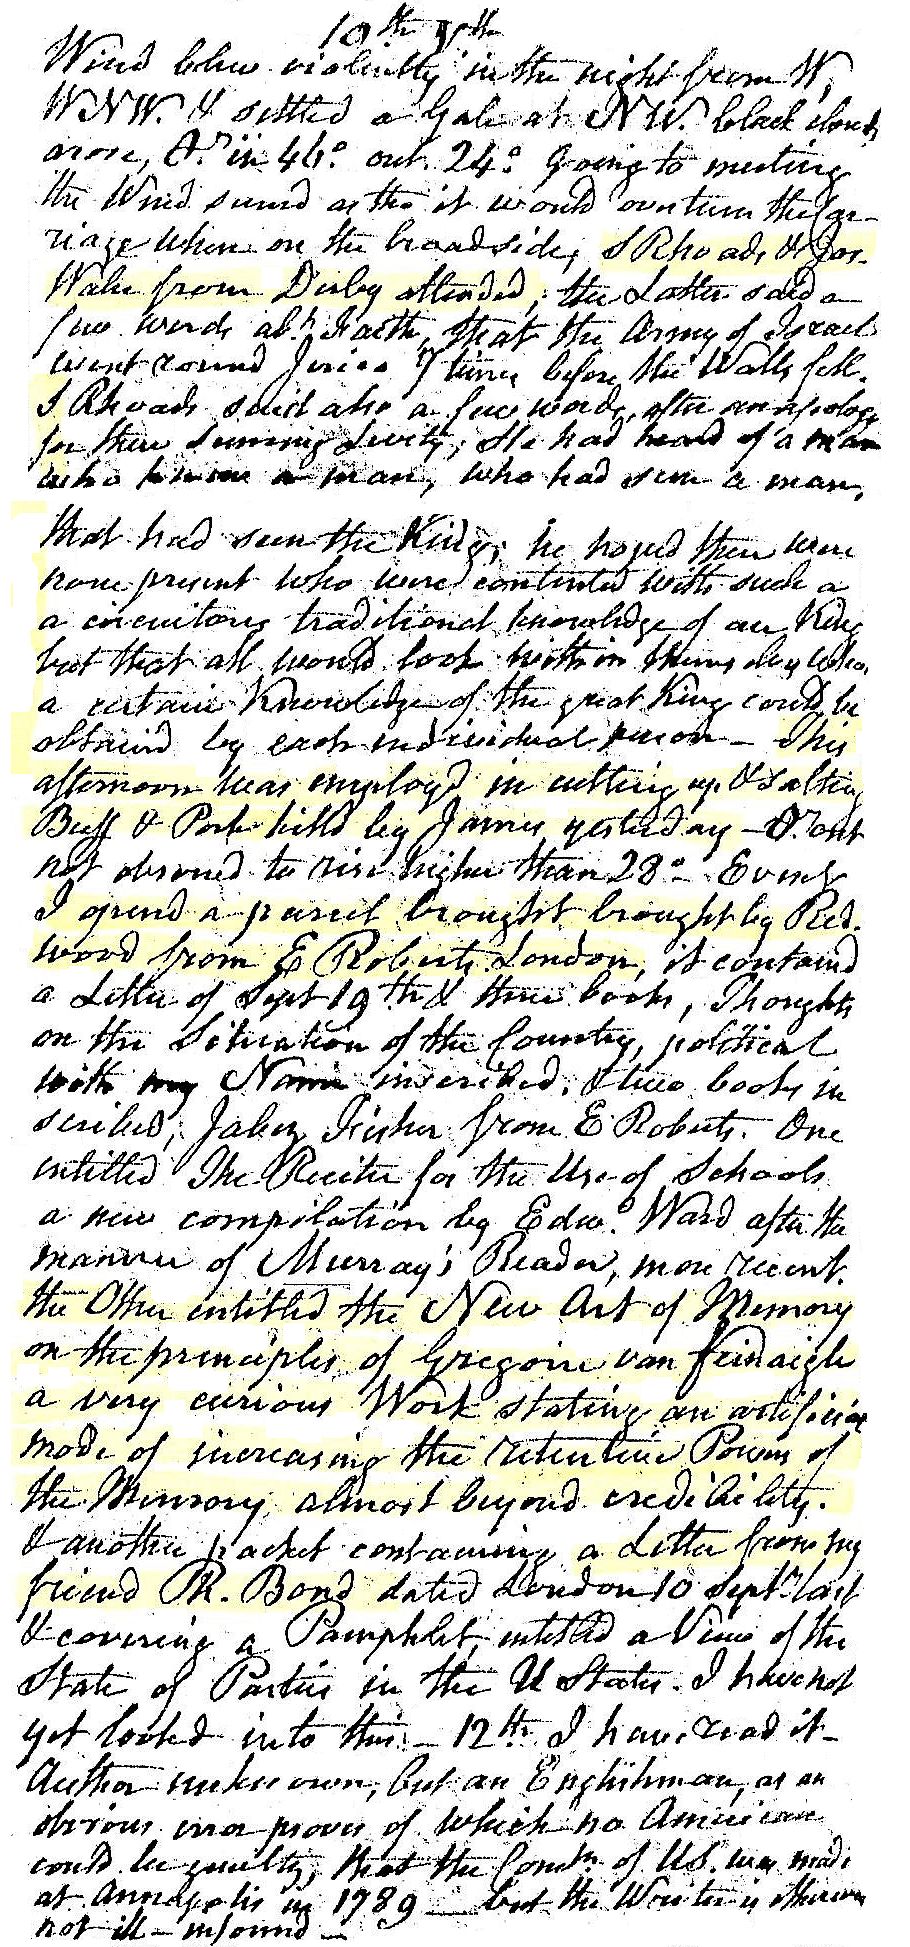 10th 5th
Wind blew violently in the night from W,
WNW. & settled a Gale at NW. black clouds
arose, in 46° out 24° Going to meeting
the Wind seemd as tho it would overturn the Car-
riage when on the broadside, J Rhoads & Jos.
Wake from Derby attended, the Latter said a
few words abt. Faith, that the Army of Israel
went round Jerico 7 times before the Walls fell.
J Rhoads said also a few words, after an apology
for their seeming Levity, He had heard of a man
who knew a man, who had seen a man,
that had seen the King; he hoped there were
none present who were contented with such a
a circuitous traditional knowledge of our King
but that all would look within themselves where
a certain Knowledge of the great King could be
obtained by each individual person — This
afternoon was employd in cutting up & salting
Beef & Pork killd by James yesterday — out
not observed to rise higher than 28° — Eveng
I opend a parcel brought brought by Red-
wood from E Roberts London, it containd
a Letter of Sept 19th & three books, Thoughts
on the Situation of the Country, political
with my Name inscribed, & two books in
scribed, Jabez Fisher from E Roberts. One
entitled The Reciter for the Use of Schools
a new compilation by Edwd. Ward after the
manner of Murray's Reader, more recent.
the Other entitled the New Art of Memory
on the principles of Gregoire von Feinaigle
a very curious Work stating an artificial
mode of increasing the retentive Powers of
the Memory almost beyond credibility.
& another packet containing a Letter from my
friend P. Bond dated London 10 Septr. last
& covering a Pamphlet, entitled a View of the
State of Parties in the U States. I have not
yet looked into this — 12th I have read it —
Author unknown, but an Englishman, as an
obvious error proves of which no American
could be guilty, that the Constn. of US. was made
at Annapolis in 1789 — but the Writer is otherwise
not ill-informd —